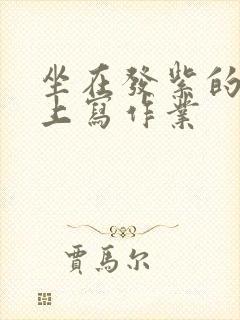 坐在發紫的
上寫作業
賈馬尔